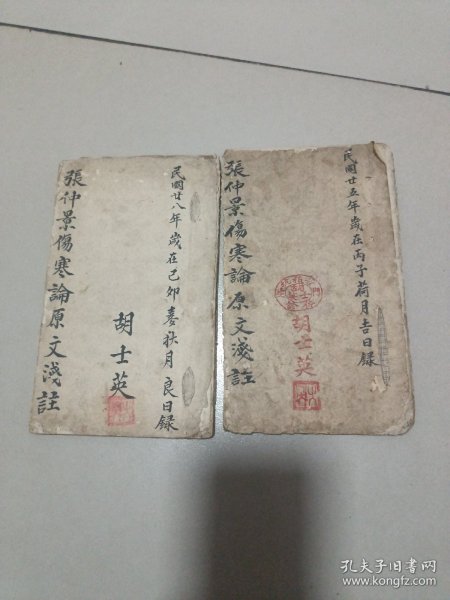 張仲景傷寒論原文淺註
民國廿八年歲在己卯麥秋月良日録
胡士英
張仲景傷寒論原文淺註
民國廿五年歲在丙子荷月吉日録
胡士英
孔夫子旧书网
www.kongfz.com